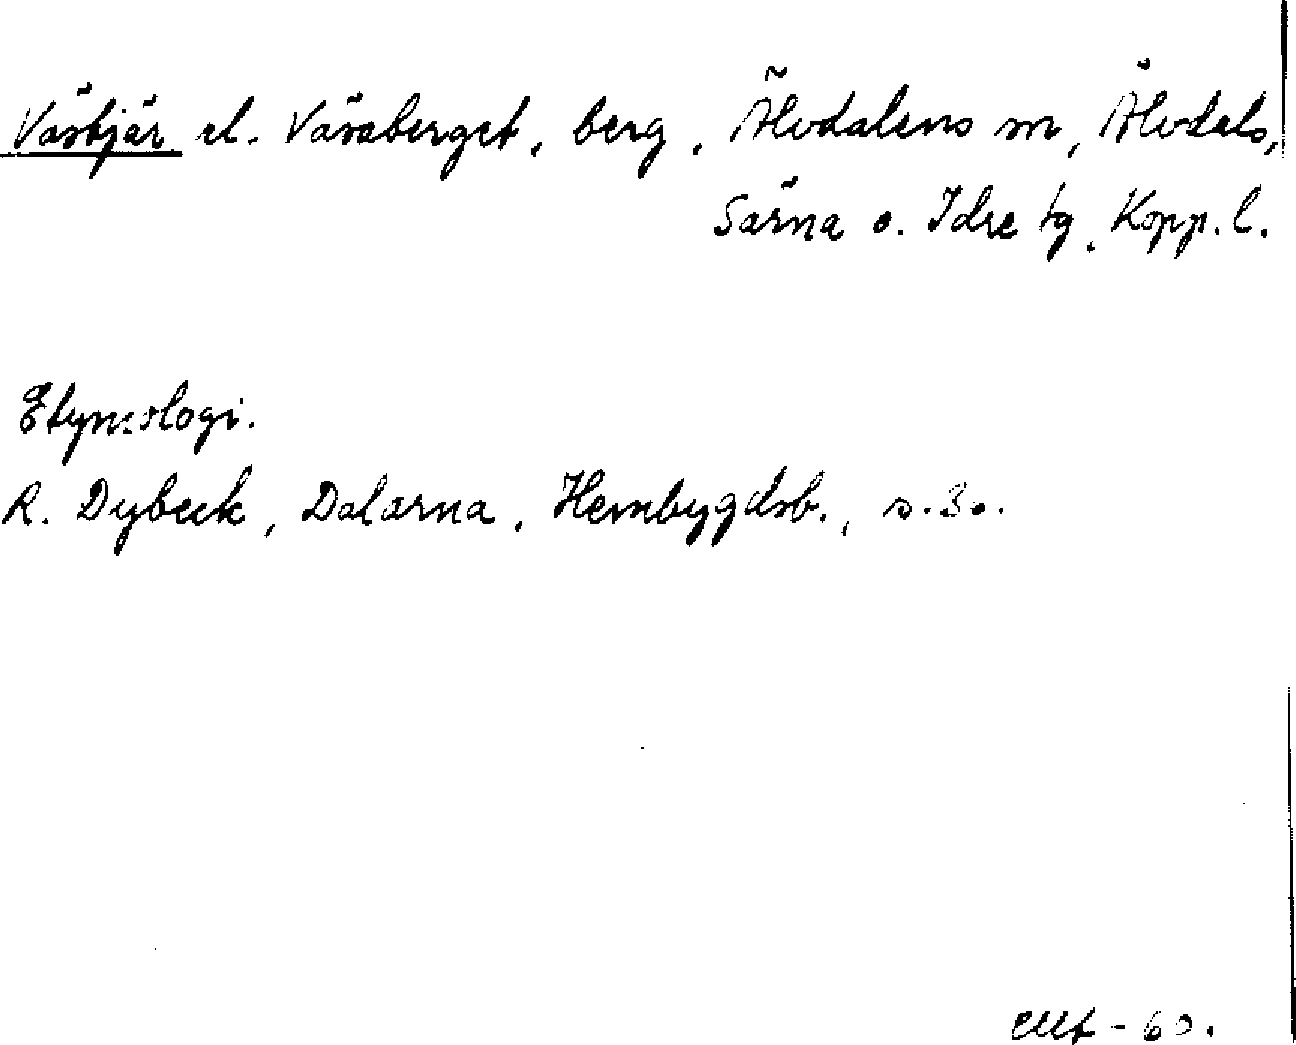 Väsbjär el. Väsaberget, berg, Älvdalens sn, Älvdals,
Särna o. Idre tg, Kopp. l.
Etymologi.
R. Dybeck, Dalarna, Hembygdsb., s. 30.
-60.